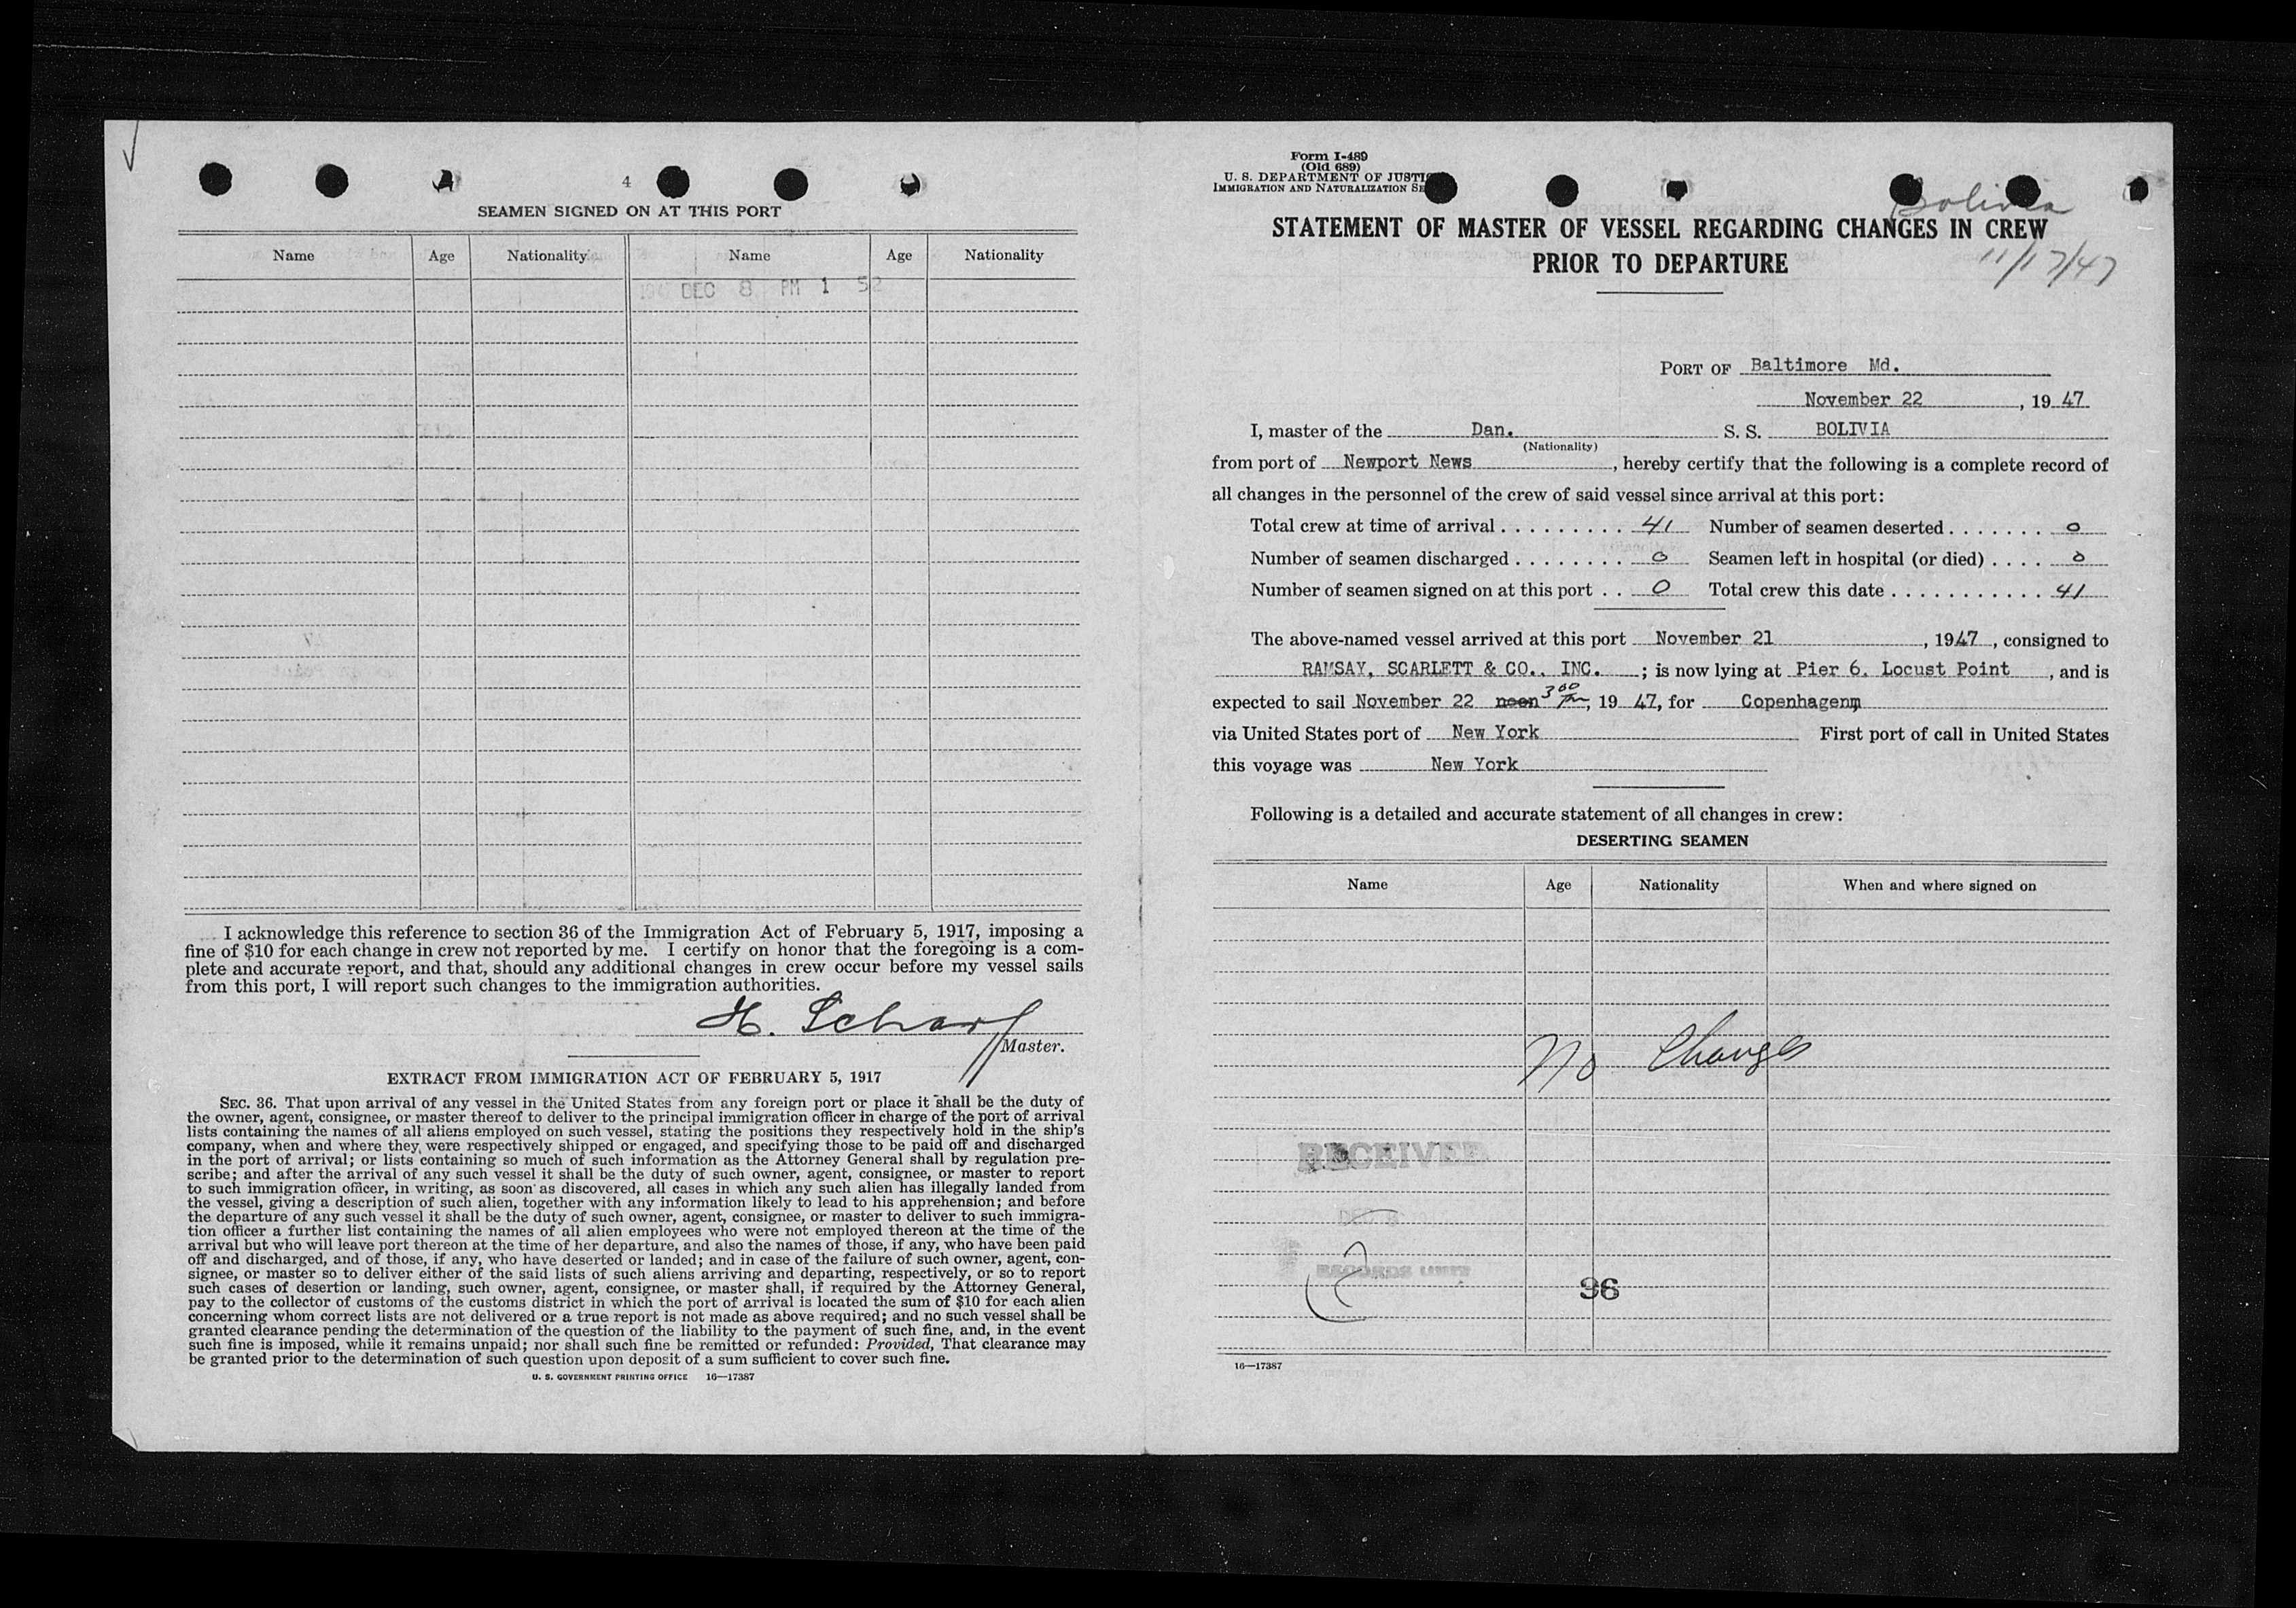 4
SEAMEN SIGNED ON AT THIS PORT
Name Age Nationality Name Age Nationality
DEC 8 PM 1 52
I acknowledge this reference to section 36 of the Immigration Act of February 5, 1917, imposing a
fine of $10 for each change in crew not reported by me. I certify on honor that the foregoing is a com-
plete and accurate report, and that, should any additional changes in crew occur before my vessel sails
from this port, I will report such changes to the immigration authorities.
H. Scharf
Master.
EXTRACT FROM IMMIGRATION ACT OF FEBRUARY 5, 1917
SEC. 36. That upon arrival of any vessel in the United States from any foreign port or place it shall be the duty of
the owner, agent, consignee, or master thereof to deliver to the principal immigration officer in charge of the port of arrival
lists containing the names of all aliens employed on such vessel, stating the positions they respectively hold in the ship's
company, when and where they were respectively shipped or engaged, and specifying those to be paid off and discharged
in the port of arrival; or lists containing so much of such information as the Attorney General shall by regulation pre-
scribe; and after the arrival of any such vessel it shall be the duty of such owner, agent, consignee, or master to report
to such immigration officer, in writing, as soon as discovered, all cases in which any such alien has illegally landed from
the vessel, giving a description of such alien, together with any information likely to lead to his apprehension; and before
the departure of any such vessel it shall be the duty of such owner, agent, consignee, or master to deliver to such immigra-
tion officer a further list containing the names of all alien employees who were not employed thereon at the time of the
arrival but who will leave port thereon at the time of her departure, and also the names of those, if any, who have been paid
off and discharged, and of those, if any, who have deserted or landed; and in case of the failure of such owner, agent, con-
signee, or master so to deliver either of the said lists of such aliens arriving and departing, respectively, or so to report
such cases of desertion or landing, such owner, agent, consignee, or master shall, if required by the Attorney General,
pay to the collector of customs of the customs district in which the port of arrival is located the sum of $10 for each alien
concerning whom correct lists are not delivered or a true report is not made as above required; and no such vessel shall be
granted clearance pending the determination of the question of the liability to the payment of such fine, and, in the event
such fine is imposed, while it remains unpaid; nor shall such fine be remitted or refunded: Provided, That clearance may
be granted prior to the determination of such question upon deposit of a sum sufficient to cover such fine.
U. S. GOVERNMENT PRINTING OFFICE 16—17387
Form I-489
(Old 689)
U. S. DEPARTMENT OF JUSTIC
IMMIGRATION AND NATURALIZATION SE
Bolivia
STATEMENT OF MASTER OF VESSEL REGARDING CHANGES IN CREW
PRIOR TO DEPARTURE
11/17/47
PORT OF Baltimore Md.
November 22, 19 47
I, master of the Dan. S. S. BOLIVIA
(Nationality)
from port of Newport News, hereby certify that the following is a complete record of
all changes in the personnel of the crew of said vessel since arrival at this port:
Total crew at time of arrival . . . . . . . . . 41 Number of seamen deserted . . . . . . . 0
Number of seamen discharged . . . . . . . . 0 Seamen left in hospital (or died) . . . . 0
Number of seamen signed on at this port . . 0 Total crew this date . . . . . . . . . . . 41
The above-named vessel arrived at this port November 21, 1947, consigned to
RAMSAY, SCARLETT & CO., INC.; is now lying at Pier 6. Locust Point, and is
expected to sail November 22 noon 3 00 Pm, 19 47, for Copenhagen
via United States port of New York First port of call in United States
this voyage was New York
Following is a detailed and accurate statement of all changes in crew:
DESERTING SEAMEN
Name Age Nationality When and where signed on
No Changes
RECEIVED
DEC 8
RECORDS
36
16—17387